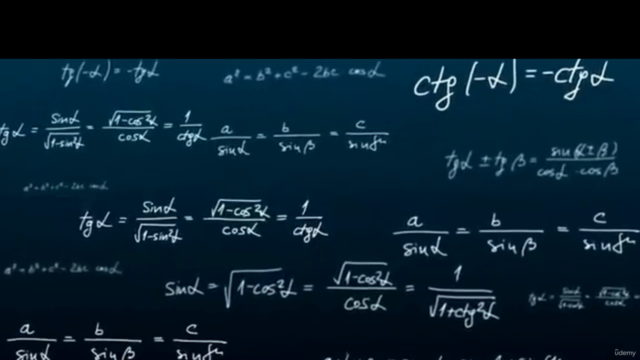 tg(-α) = -tgα
a² = b² + c² - 2bc cosα
ctg(-α) = -ctgα
tgα = sinα / √1-sin²α = √1-cos²α / cosα = 1 / ctgα
a / sinα = b / sinβ = c / sin
tgα ± tgβ = sin(α±β) / cosα · cosβ
a² = b² + c² - 2bc cosα
tgα = sinα / √1-sin²α = √1-cos²α / cosα = 1 / ctgα
a / sinα = b / sinβ = c / sin
a² = b² + c² - 2bc cosα
sinα = √1-cos²α = √1-cos²α / cosα = 1 / √1+ctg²α
a / sinα = b / sinβ = c / sin
udemy